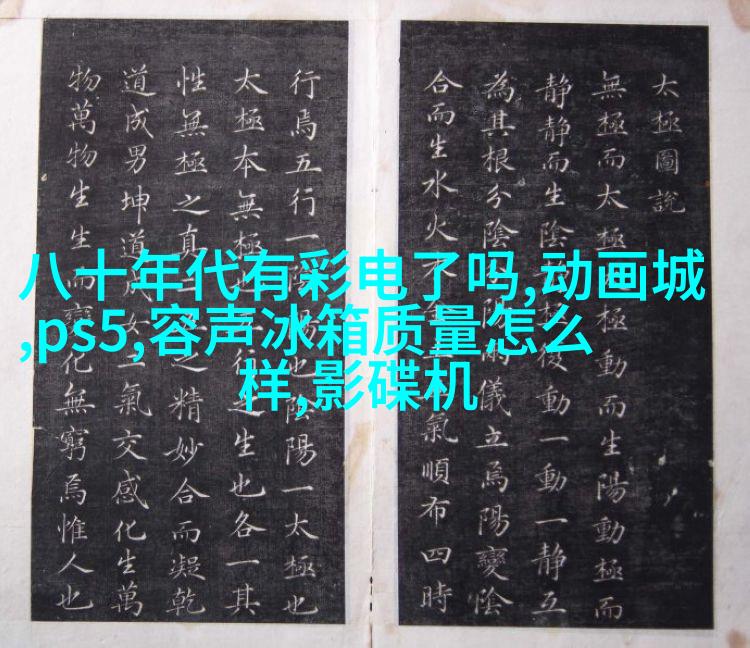 太極圖說
無極而太極極動而生陽動極而
静静而生陰極復動一動一静互
為其根分陰陽兩儀立焉陽變陰
合而生水火木金氣順布四時
行焉五行一陰陽也陰陽一太極也
太極本無極也行之生也各一其
性無極之真二之精妙合而凝乾
道成男坤道成女二氣交感化生萬
物萬物生生而變化無窮焉惟人也
八十年代有彩电了吗,动画城
,ps5,容声冰箱质量怎么
样,影碟机